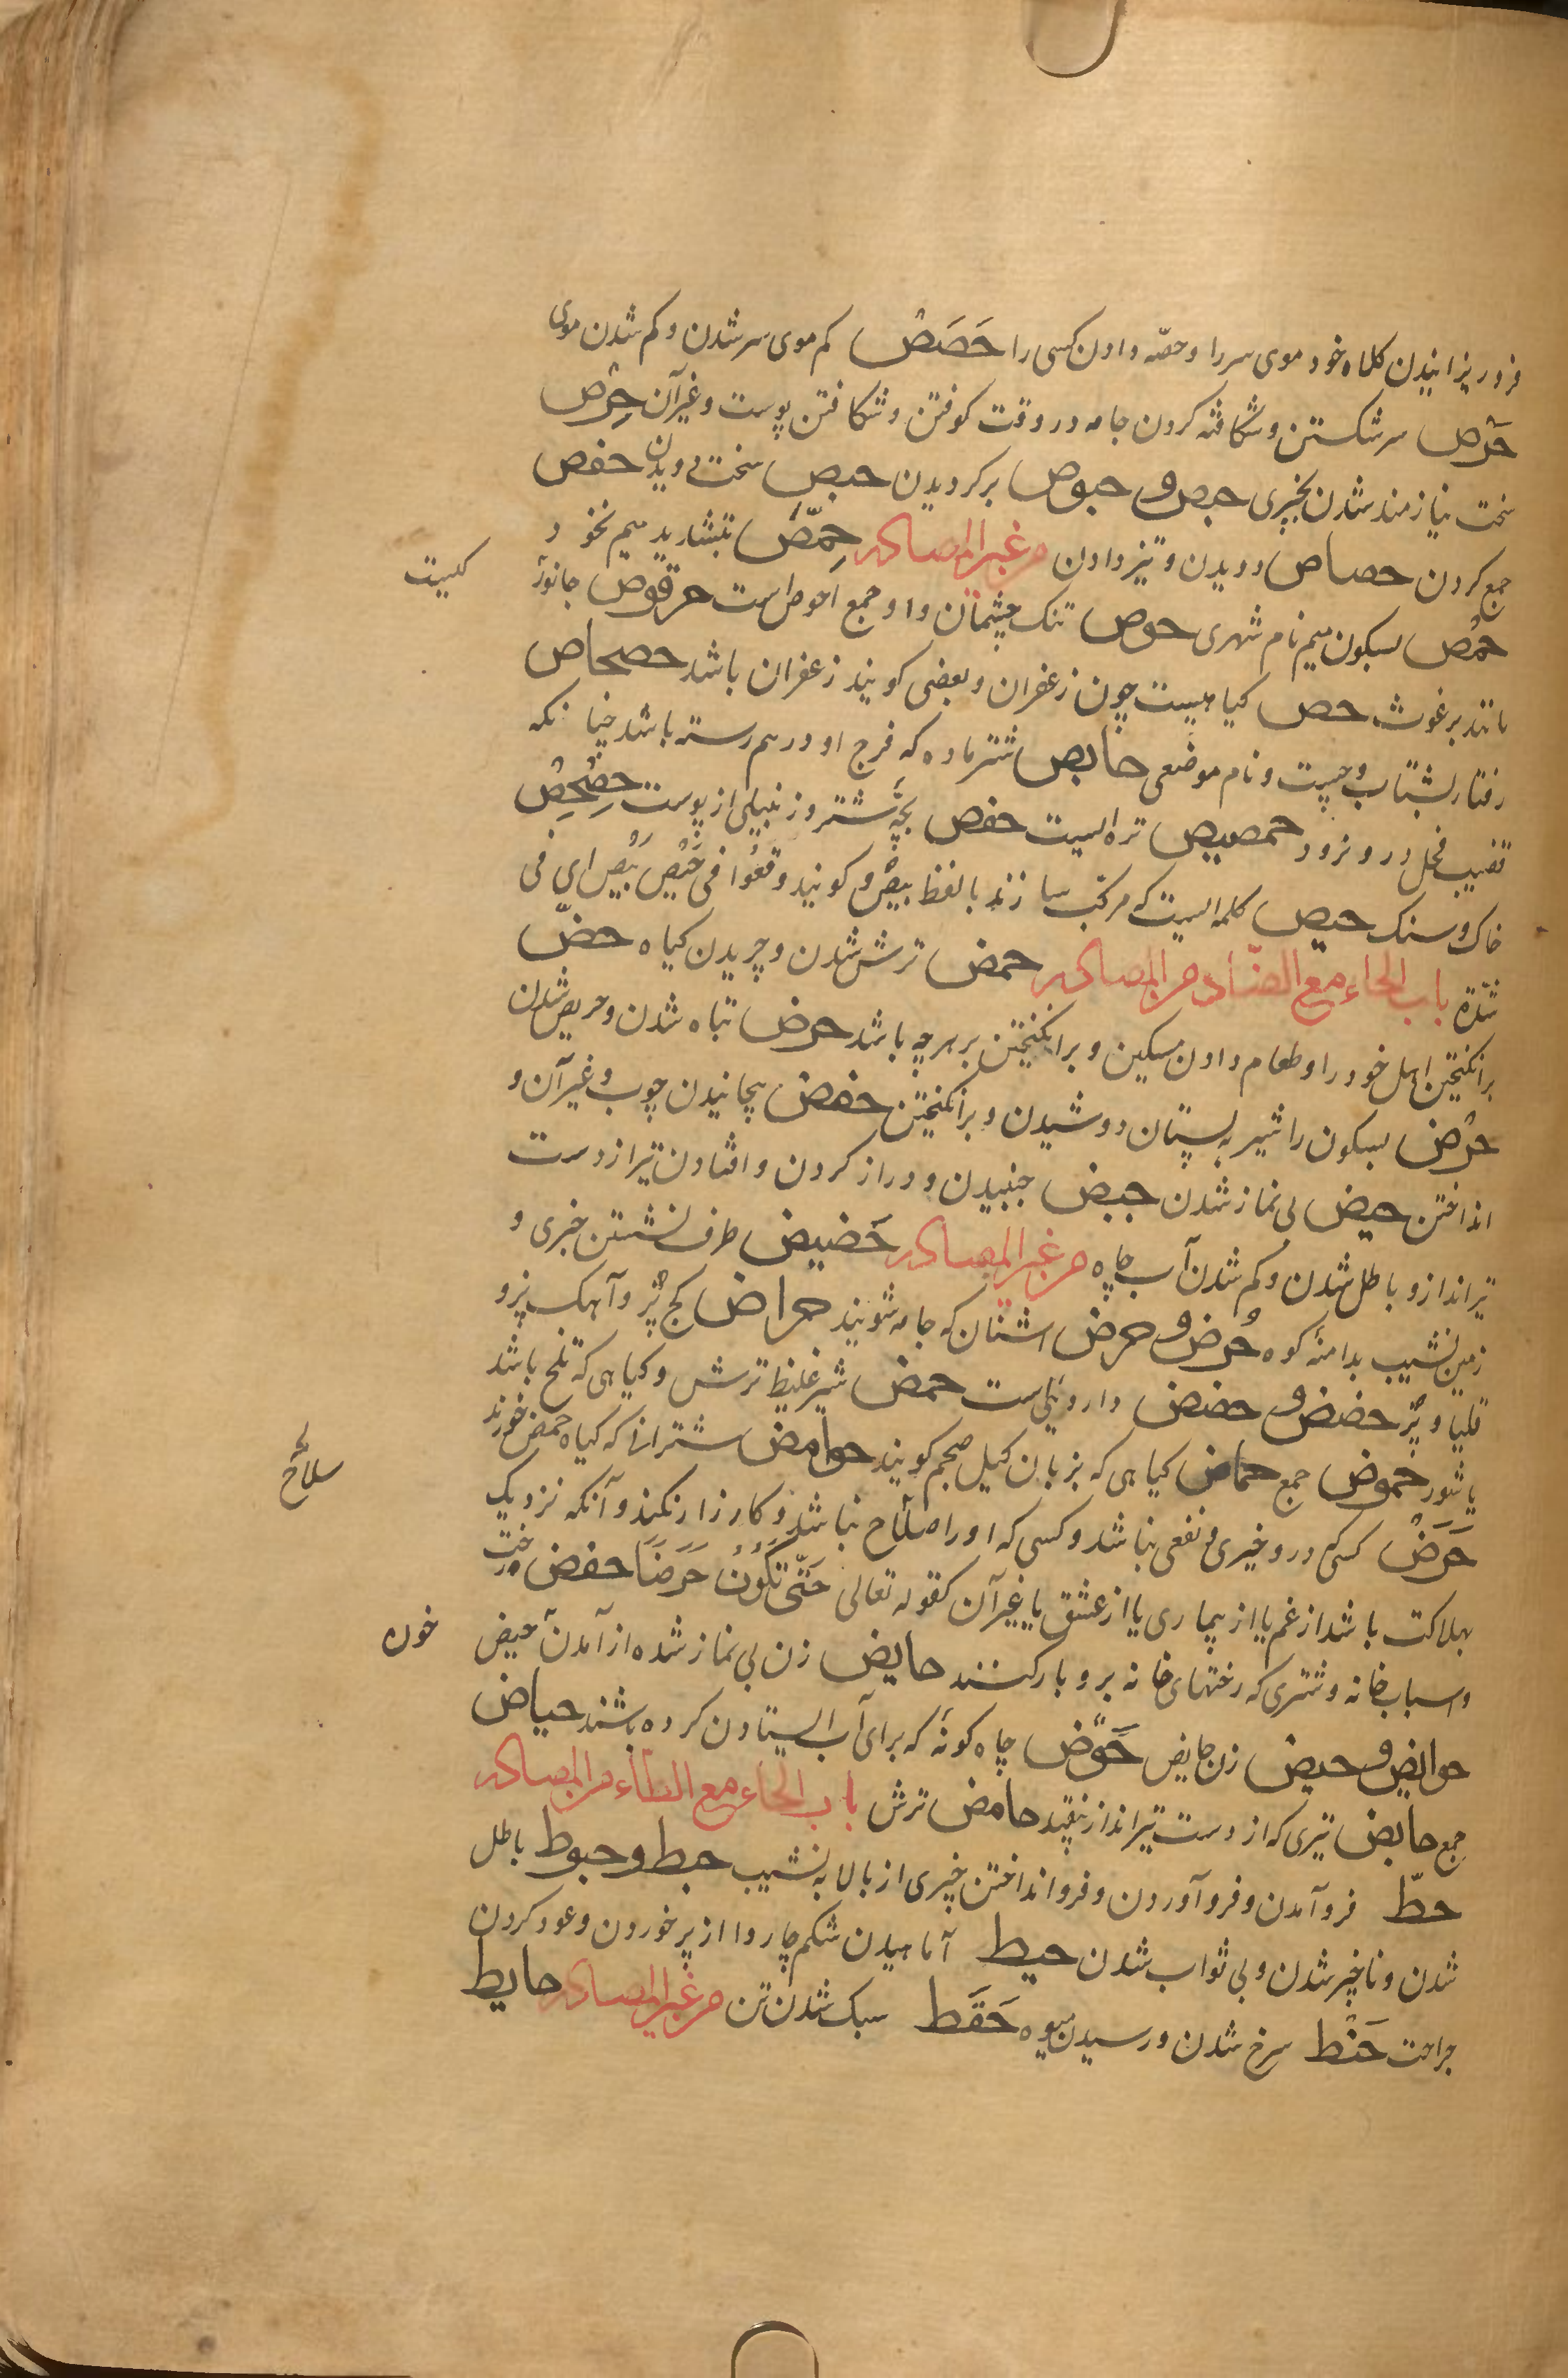 فرو ریزانیدن کلاه خود موی سر را و حصّه دادن کسی را حَصَصْ کم موی سر شدن و کم شدن موی
حَرْص سر شکستن و شکافته کردن جامه در وقت کوفتن و شکافتن پوست و غیر آن حِرْص
سخت نیازمند شدن بچیزی حیص و حیوص برکردیدن حبص سخت دویدن حفص
جمع کردن حصاص دویدن و تیز دادن من غیر المصادر حِمَّص بتشدید میم نخود و
حمْص بسکون میم نام شهری حوص تنک چشمان و او جمع احوص است حرقوص جانورٔ
کیست
مانند برغوث حص کیاهیست چون زعفران و بعضی کویند زعفران باشد حصحاص
رفتار بشتاب و چست و نام موضعی حایص شتر ماده که فرج او در هم رسته باشد چنانکه
قضیب فحل درو نرود حمصیص تره ایست حفص بچّهٔ شتر و زنبیلی از پوست حِصْحِصْ
خاک و سنک حیص کلمه ایست که مرکب سازند با لفظ بیص و کویند وقعُوا فی حَیْصَ بَیْصَ ای فی
شدّة باب الحاء مع الضّاد من المصادر حمض ترش شدن و چریدن کیاه حضّ
برانکیختن اهل خود را و طعام دادن مسکین و برانکیختن بر هر چه باشد حرض تباه شدن و حریص شدن
حرْض بسکون را شیر به پستان دوشیدن و برانکیختن حفض پچانیدن چوب و غیر آن و
انداختن حیض بی نماز شدن حبض جنبیدن و دراز کردن و افتادن تیر از دست
تیرانداز و باطل شدن و کم شدن آب چاه من غیر المصادر حَضیض طرف نشستن خبری و
زمین نشیب بدامنهٔ کوه حُرض و حرض اشنان که جامه شویند حراض کج پُز و آهک پز و
قلیا و پز حضض و حضض داروئی است حمض شیر غلیظ ترش و کیاهی که تلخ باشد
یا شور حموض جمع حماض کیاهی که بزبان کیل صحم کویند حوامض شترانی که کیاه حمض خورند
سلاح
حَرَضْ کسی که درو خیری و نفعی نباشد و کسی که او را اصلاح نباشد و کارزار نکند و آنکه نزدیک
بهلاکت باشد از غم یا از بیماری یا از عشق یا غیر آن کقوله تعالی حَتّی تَکُوْنَ حَرَضًا حفض رخت
و اسباب خانه و شتری که رختهای خانه برو بار کنند حایض زن بی نماز شده از آمدن حیض
خون
حوایض و حیض زن حایض حَوْض چاه کونهٔ که برای آب ایستادن کرده باشند حیاض
جمع حابض تیری که از دست تیرانداز بیفتد حامض ترش باب الحاء مع الطاء من المصادر
حطّ فرو آمدن و فرو آوردن و فرو انداختن چیزی از بالا به نشیب حبط و حبوط باطل
شدن و ناچیز شدن و بی ثواب شدن حبط آماهیدن شکم چاروا از پر خوردن و عود کردن
جراحت حَنْط سرخ شدن و رسیدن میوه حَقَط سبک شدن تن من غیر المصادر حایط